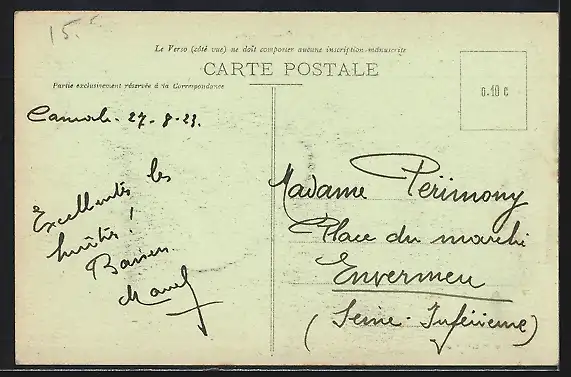 15.
Le Verso (côté vue) ne doit comporter aucune inscription manuscrite
CARTE POSTALE
Partie exclusivement réservée à la Correspondance
0.10 c
27-8-23.
Excellentes les
huîtres!
Madame Périmony
Place du marché
Envermeu
(Seine-Inférieure)